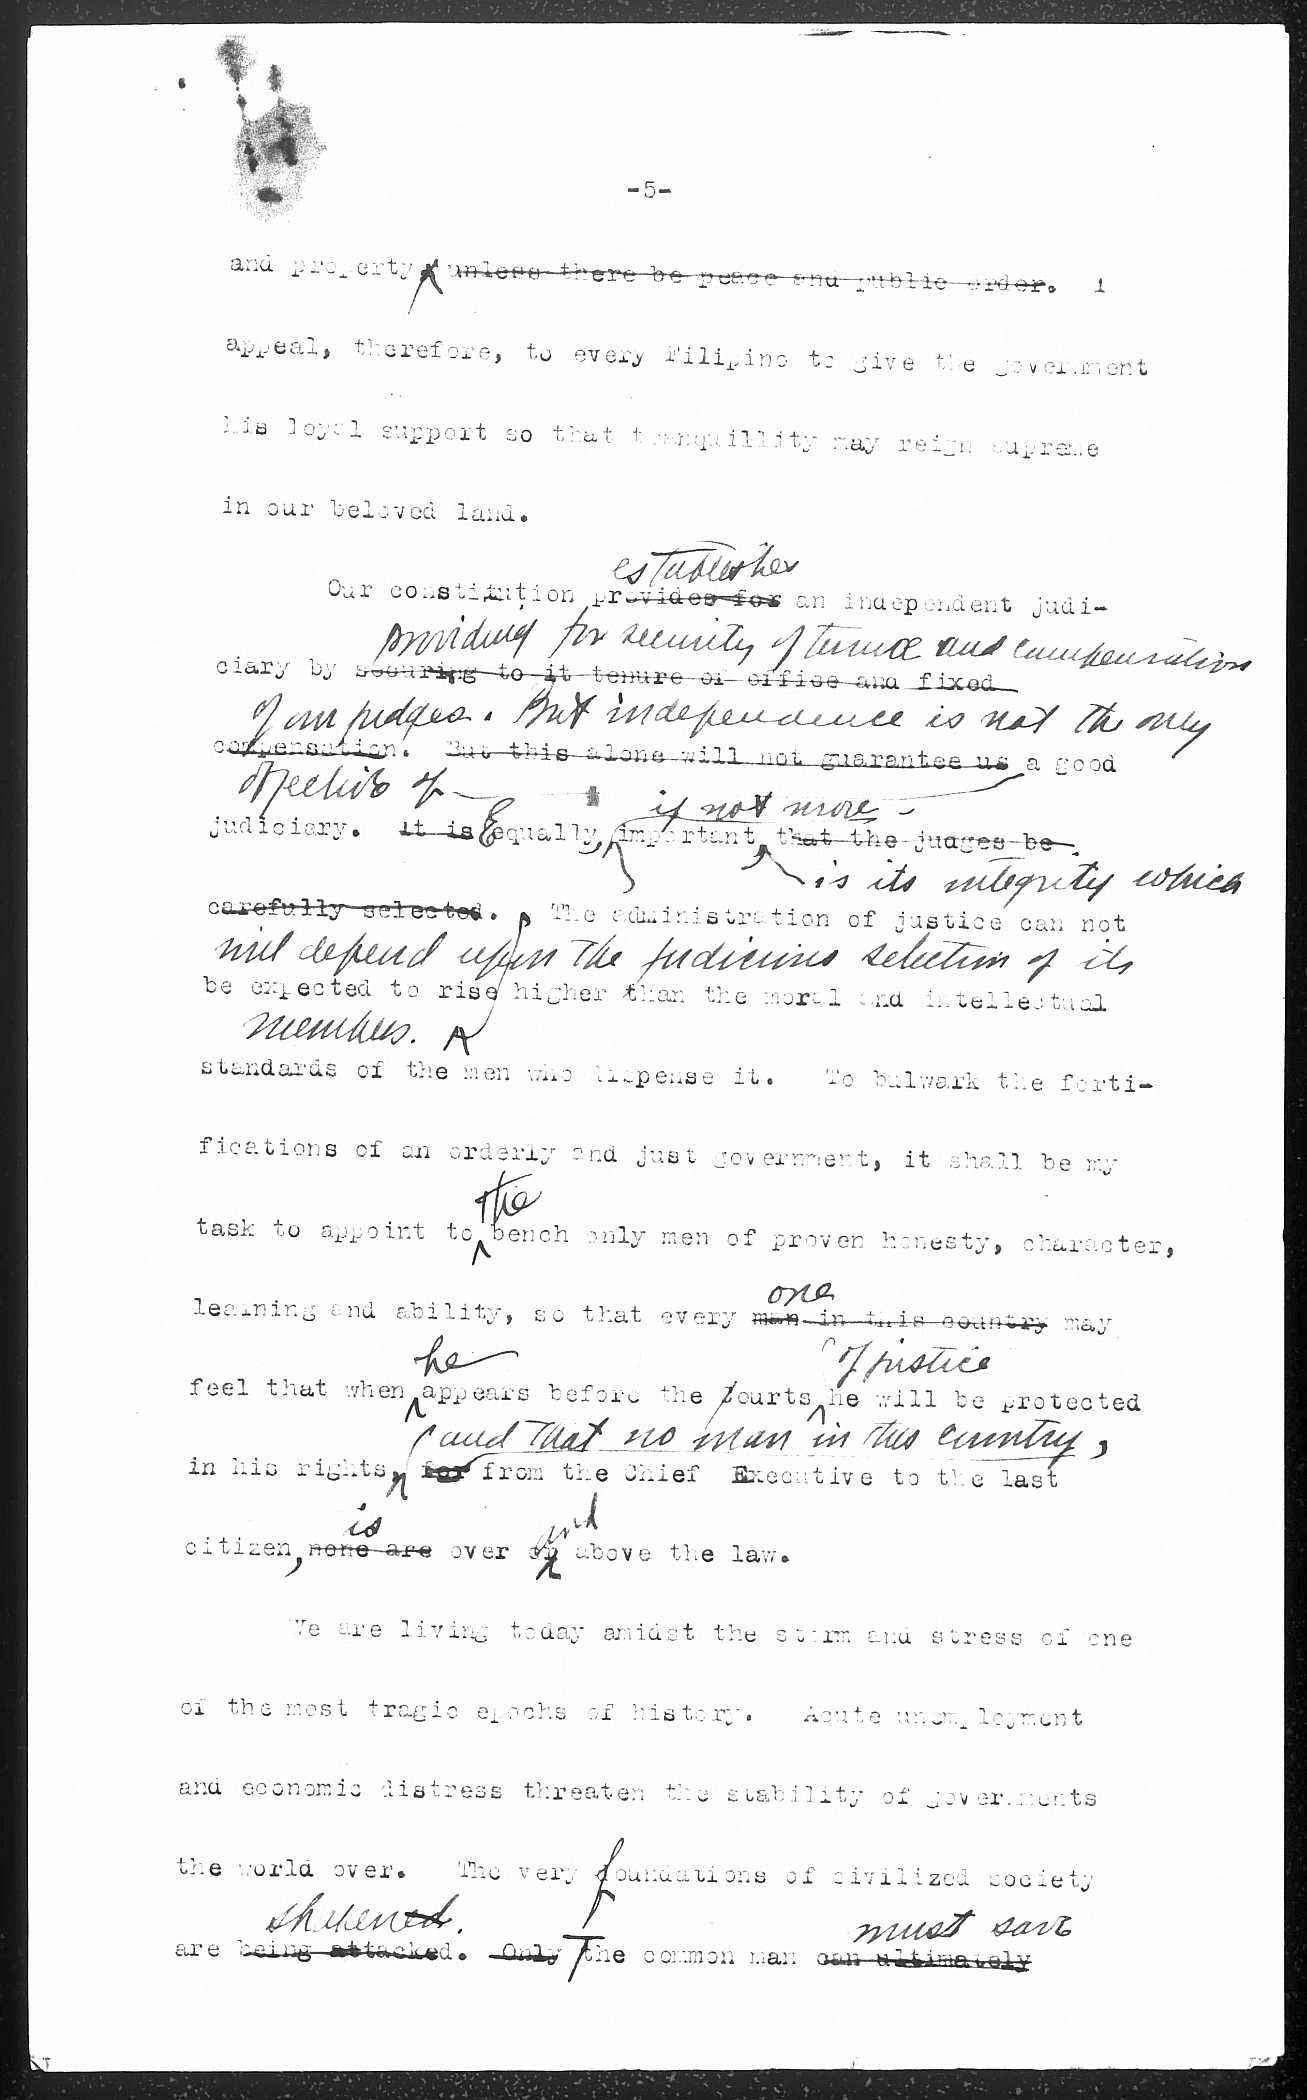 -5-
and property unless there be peace and public order. I
appeal, therefore, to every Filipino to give the government
his loyal support so that tranquillity may reign supreme
in our beloved land.
establishes
Our constitution provides for an independent judi-
providing for security of tenure and compensation
ciary by securing to it tenure of office and fixed
of our judges. But independence is not the only
compensation. But this alone will not guarantee us a good
objective of
if not more
judiciary. It is Equally, important, that the judges be
is its integrity which
carefully selected. The administration of justice can not
will depend upon the judicious selection of its
be expected to rise higher than the moral and intellectual
members.
standards of the men who dispense it. To bulwark the forti-
fications of an orderly and just government, it shall be my
the
task to appoint to bench only men of proven honesty, character,
one
learning and ability, so that every man in this country may
he
of justice
feel that when appears before the courts he will be protected
and that no man in this country,
in his rights, for from the Chief Executive to the last
is
and
citizen, none are over or above the law.
We are living today amidst the storm and stress of one
of the most tragic epochs of history. Acute unemployment
and economic distress threaten the stability of governments
the world over. The very foundations of civilized society
shaken.
must save
are being attacked. Only The common man can ultimately